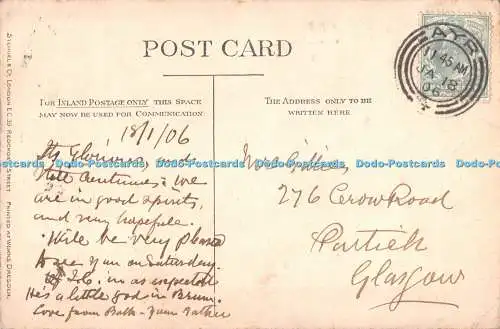 POST CARD
FOR INLAND POSTAGE ONLY THIS SPACE
MAY NOW BE USED FOR COMMUNICATION
THE ADDRESS ONLY TO BE
WRITTEN HERE
AYR
11 45 AM
JA 18
06
18/1/06
Its Glorious
We
are in good spirits,
and very hopeful.
Will be very pleased
to see you on Saturday
is in as expected
He's a little god in
Love from Both - Your Father
276 Crow Road
Partick
Glasgow
STEWART & LONDON E.C. REDCROSS STREET
PRINTED AT WORKS DRESDEN
Dodo-Postcards Dodo-Postcards Dodo-Postcards Dodo-Postcards Dodo-Postcards